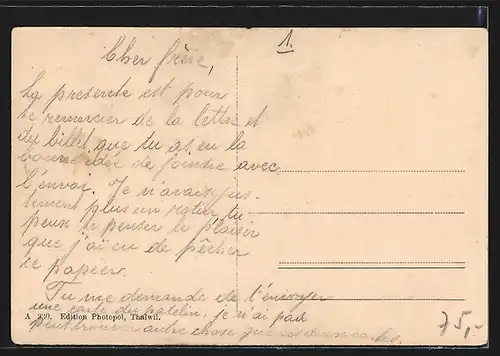 1.
Cher frère,
La présente est pour
te remercier de la lettre et
du billet que tu as eu la
bonne idée de joindre avec
l'envoi. Je n'avais jus-
tement plus un radier, tu
peux te penser le plaisir
que j'ai eu de pêcher
ce papier.
Tu me demande de t'envoyer
une carte du patelin, je n'ai pas
A 330. Edition Photopol, Thalwil.
peut trouver autre chose que ces deux cartes.
75,-